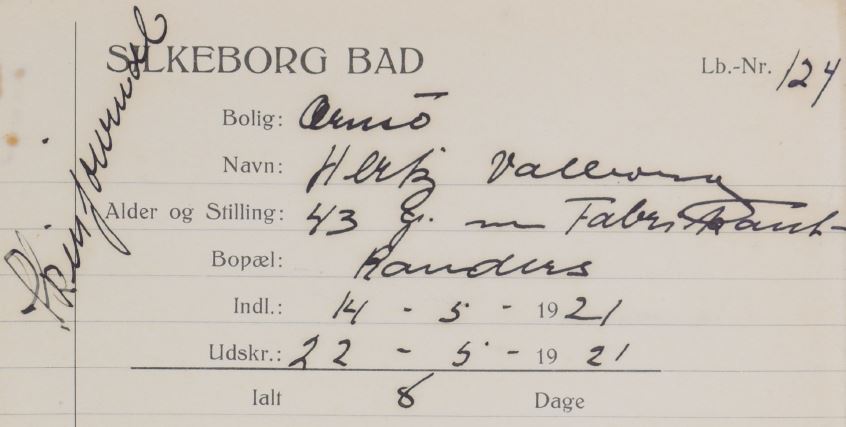 SILKEBORG BAD
Lb.-Nr. 124
Bolig: Ormø
Navn: Hertz
Alder og Stilling: 43 g. m Fabrikant
Bopæl: Randers
Indl.: 14 - 5 - 1921
Udskr.: 22 - 5 - 1921
Ialt 8 Dage